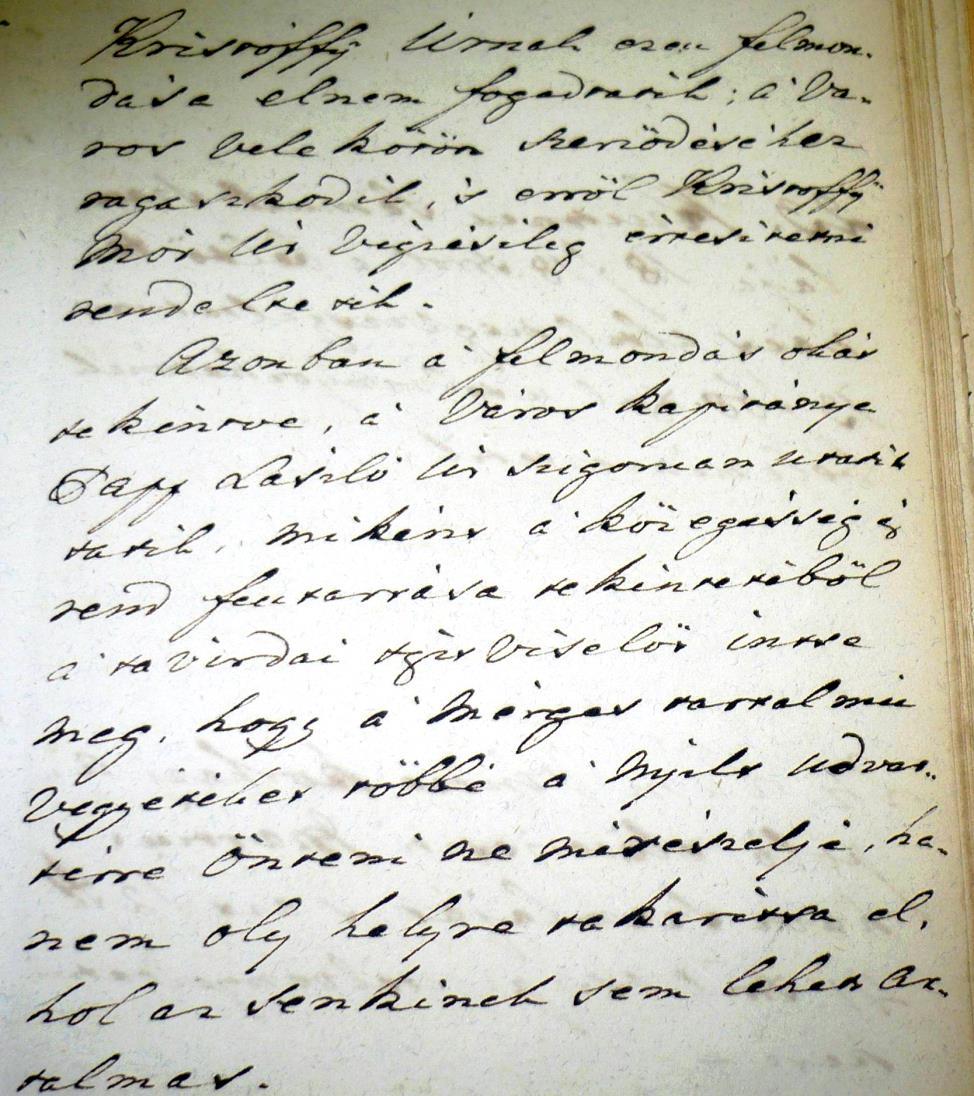 Kristóffÿ Urnak ezen felmon-
dása elnem fogadtatik; á Vá-
ros vele kötött szerződéséhez
ragaszkodik, is erről Kristoffÿ
Mór Úr Végzésileg értesitetni
rendeltetik.
Azonban á felmondás okát
tekintve, á Város kapitánya
Papp László Úr szigoruan utasit
tatik, miként á közegésség és
rend fentartása tekintetéből
á távirdai tiszt viselőt intse
meg, hogy á Mérges tartalmú
Vegyítéket többé á Nyilt udvar-
térre Önteni ne mérészelje, ha-
nem oly helyre takarítsa el,
hol az senkinek sem lehet ár-
talmas.